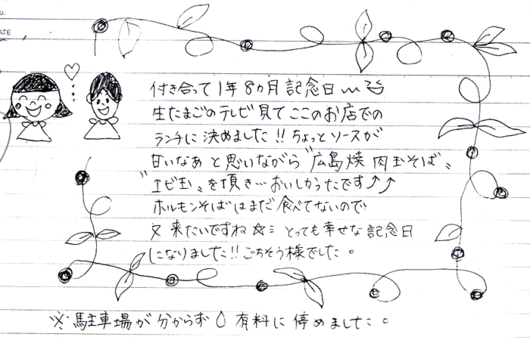 ATE
付き合って1年8ヵ月記念日〰
生たまごのテレビ見てここのお店での
ランチに決めました!!ちょっとソースが
甘いなぁと思いながら"広島焼 肉玉そば"
"エビ玉"を頂き…おいしかったです↑↑
ホルモンそばはまだ食べてないので
又来たいですね☆ミとっても幸せな記念日
になりました!!ごちそう様でした。
※駐車場が分からず 有料に停めました。